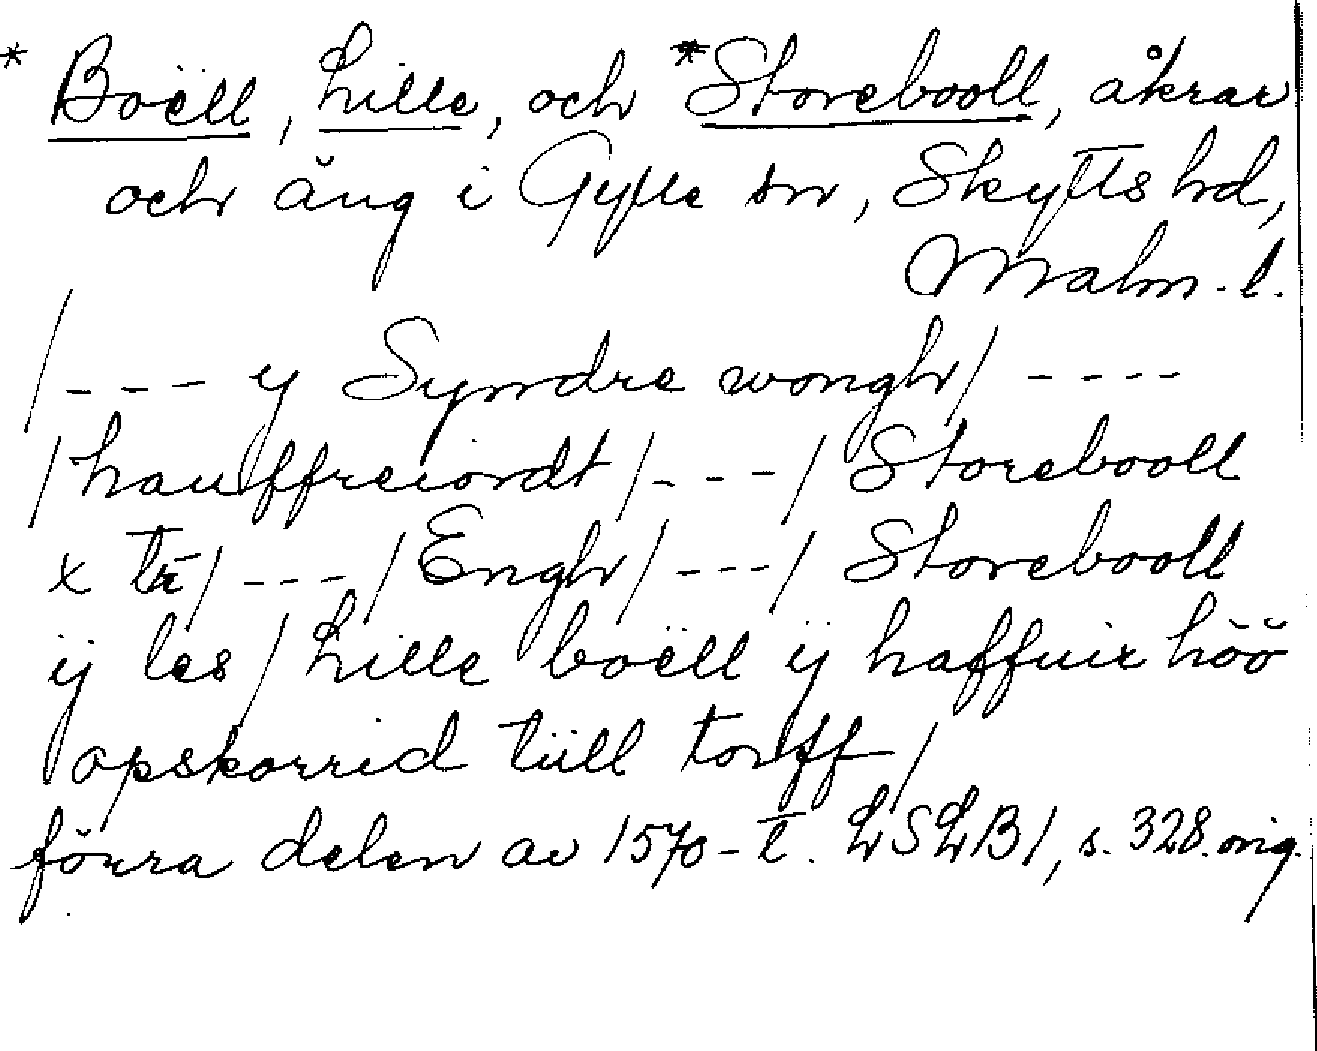 * Boëll, Lille, och *Storebooll, åkrar
och äng i Gylle sn, Skytts hd,
Malm. l.
/--- y Syndre wongh/ ----
/hauffreiordt/---/ Storebooll
x tr/---/Engh/---/ Storebooll
ij les/Lille boëll ij haffuir höö
opskorrid tüll torff/
förra delen av 1570-t. LSLB1, s. 328. orig.